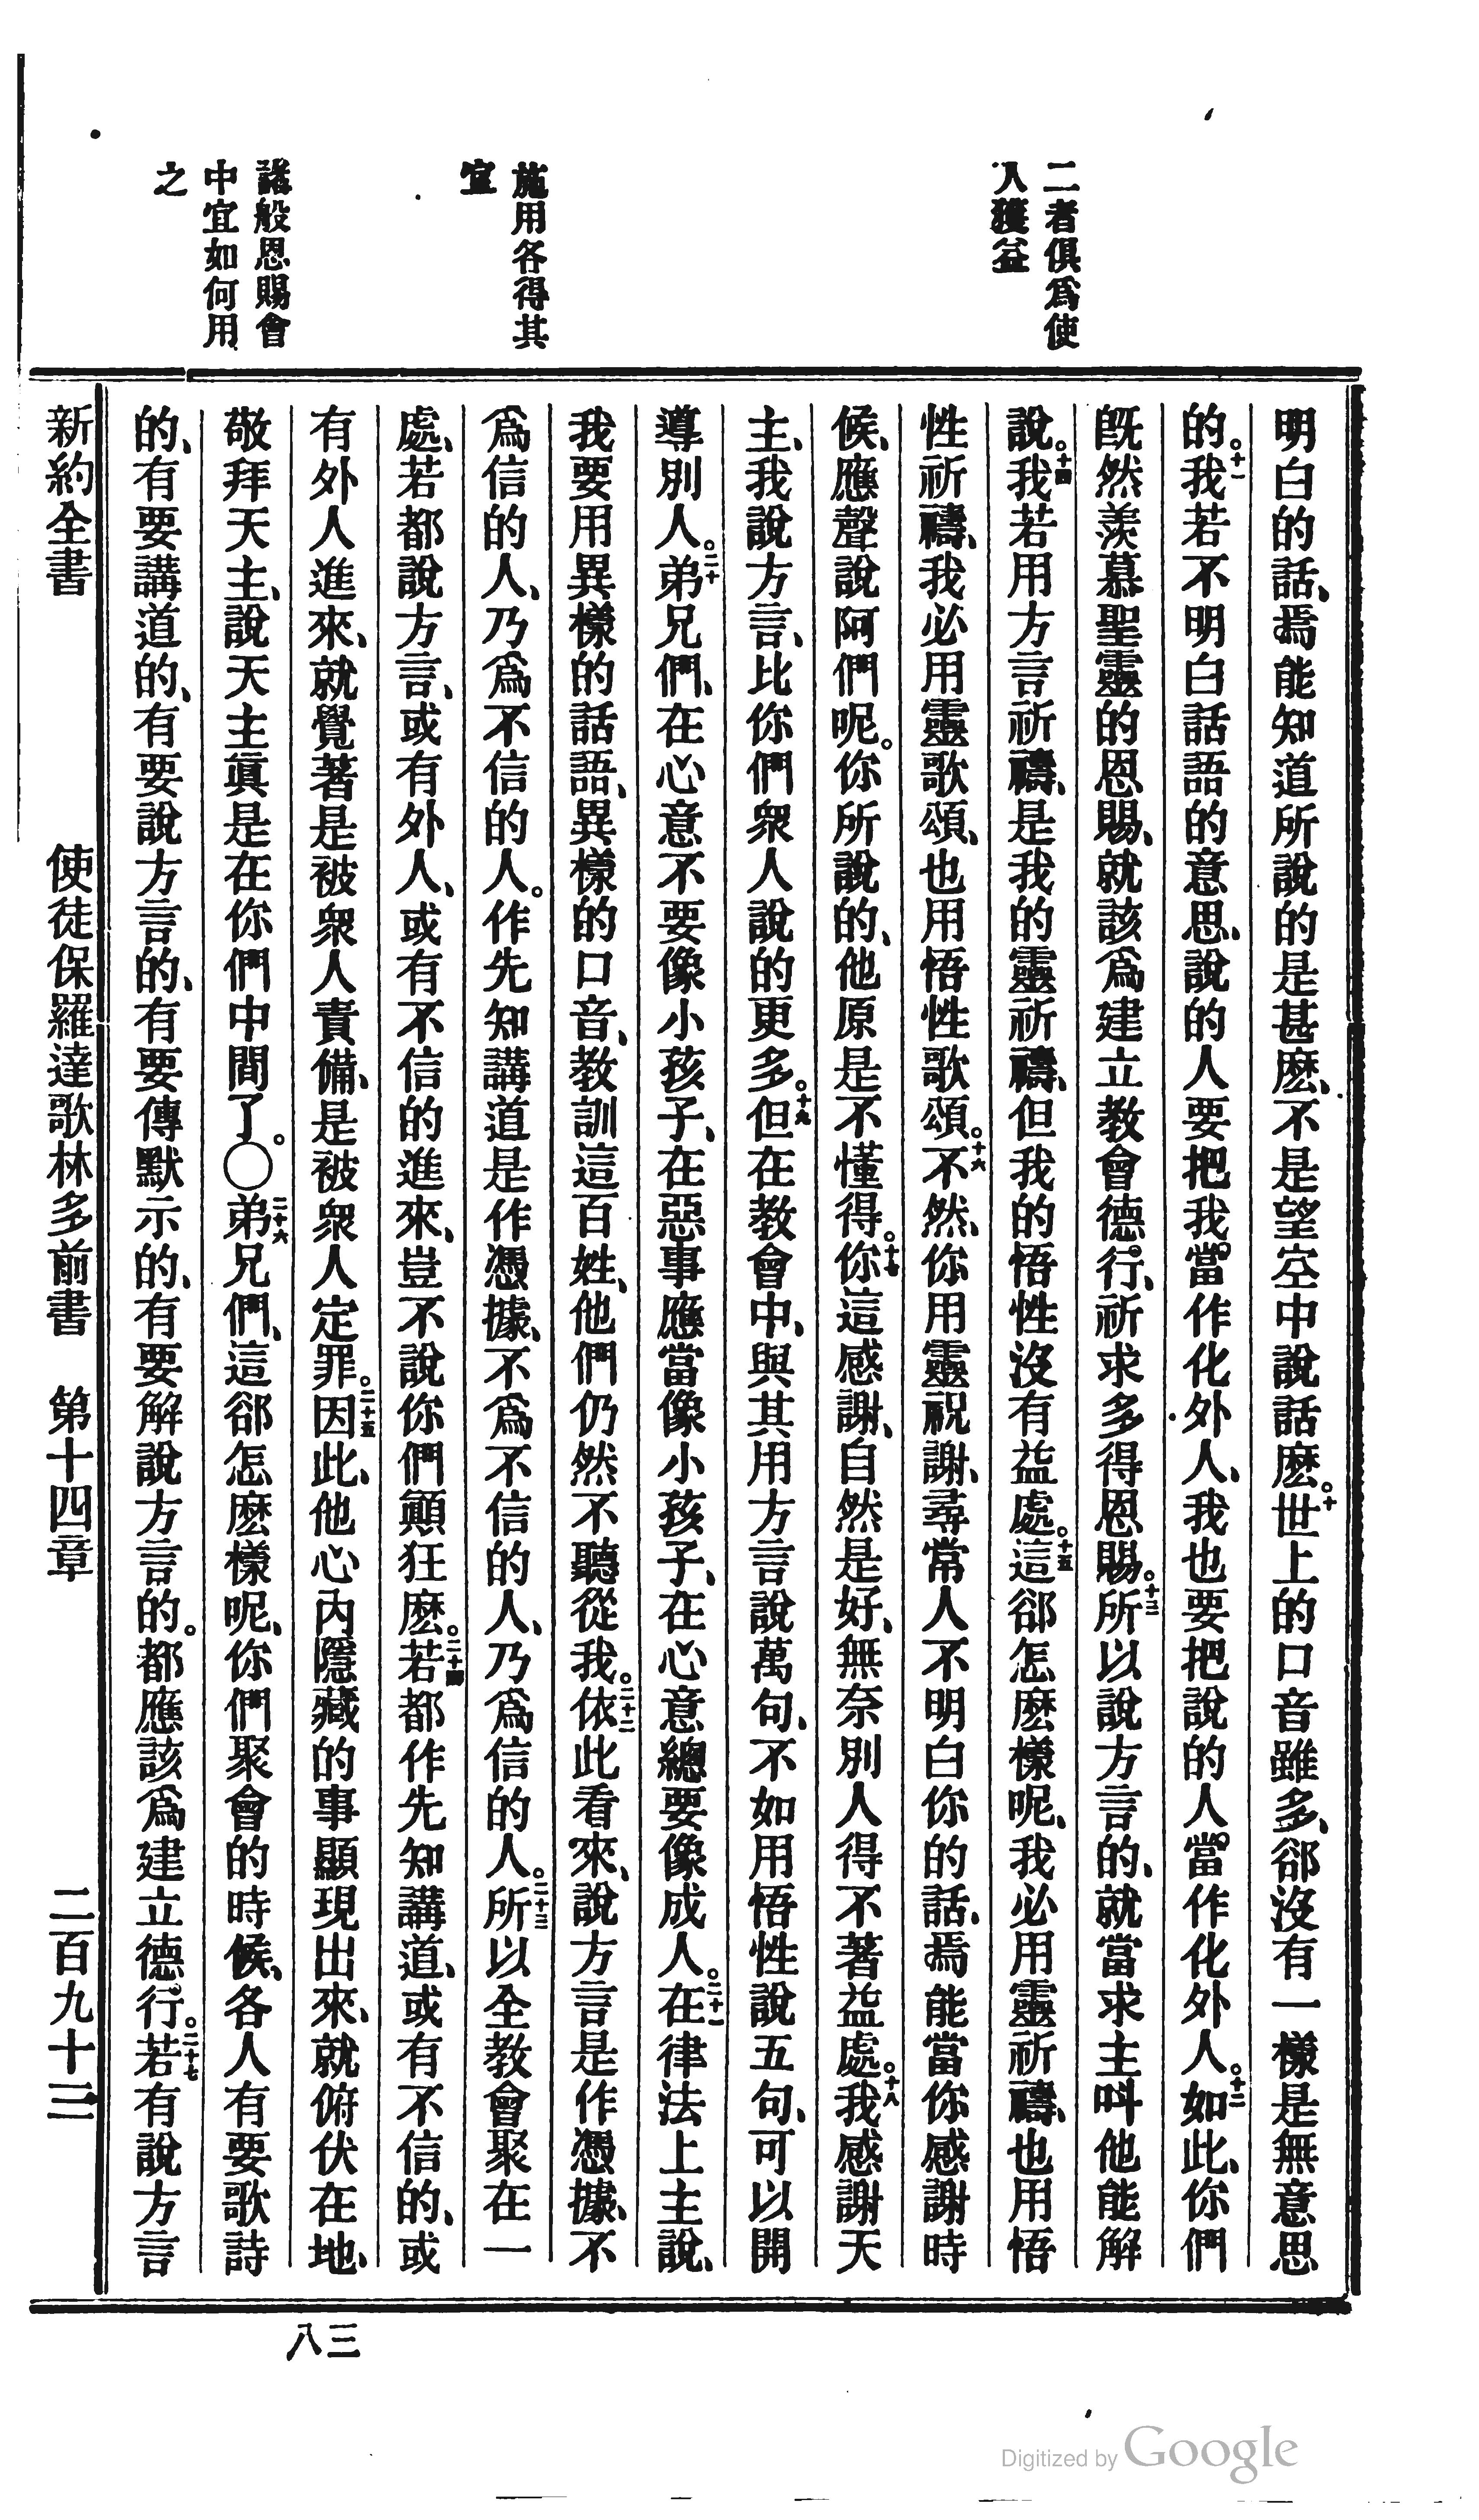 二者俱爲使
人獲益
施用各得其
宜
諸般恩賜會
中宜如何用
之
明白的話、焉能知道所說的是甚麽、不是望空中說話麽。十世上的口音雖多、郤沒有一樣是無意思
的。十一我若不明白話語的意思、說的人要把我當作化外人、我也要把說的人當作化外人。十二如此、你們
旣然羨慕聖靈的恩賜、就該爲建立教會德行、祈求多得恩賜。十三所以說方言的、就當求主叫他能解
說。十四我若用方言祈禱、是我的靈祈禱、但我的悟性沒有益處。十五這郤怎麽樣呢、我必用靈祈禱、也用悟
性祈禱、我必用靈歌頌、也用悟性歌頌。十六不然、你用靈祝謝、尋常人不明白你的話、焉能當你感謝時
候、應聲說阿們呢。你所說的、他原是不懂得。十七你這感謝、自然是好、無奈別人得不著益處。十八我感謝天
主、我說方言、比你們衆人說的更多。十九但在教會中、與其用方言說萬句、不如用悟性說五句、可以開
導別人。二十弟兄們、在心意不要像小孩子、在惡事應當像小孩子、在心意總要像成人。二十一在律法上主說、
我要用異樣的話語、異樣的口音、教訓這百姓、他們仍然不聽從我。二十二依此看來、說方言是作憑據、不
爲信的人、乃爲不信的人。作先知講道是作憑據、不爲不信的人、乃爲信的人。二十三所以全教會聚在一
處、若都說方言、或有外人、或有不信的進來、豈不說你們顚狂麽。二十四若都作先知講道、或有不信的、或
有外人進來、就覺著是被衆人責備、是被衆人定罪。二十五因此、他心內隱藏的事顯現出來、就俯伏在地、
敬拜天主、說天主眞是在你們中間了。〇二十六弟兄們、這郤怎麽樣呢、你們聚會的時候、各人有要歌詩
的、有要講道的、有要說方言的、有要傳默示的、有要解說方言的。都應該爲建立德行。二十七若有說方言
新約全書 使徒保羅達歌林多前書 第十四章 二百九十三
三八
Digitized by Google